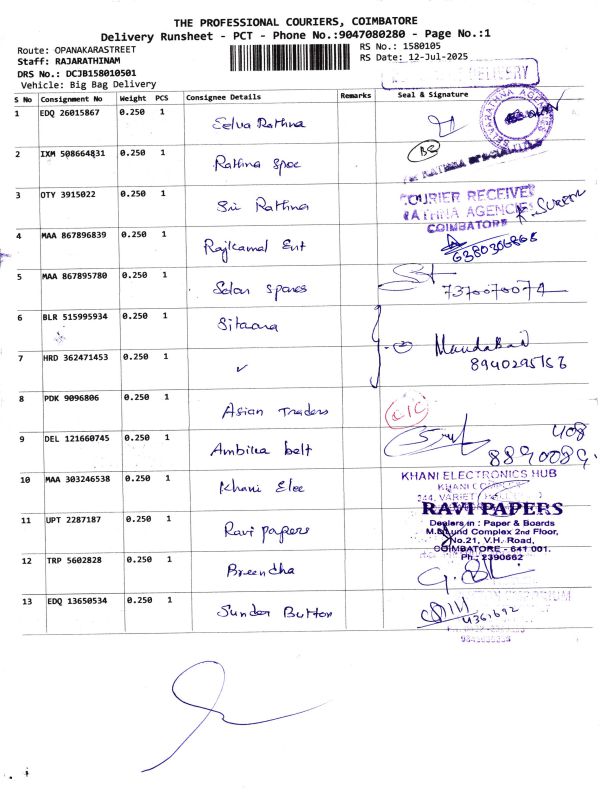 THE PROFESSIONAL COURIERS, COIMBATORE
Delivery Runsheet - PCT - Phone No.:9047080280 - Page No.:1
Route: OPANAKARASTREET
RS No.: 1580105
Staff: RAJARATHINAM
RS Date: 12-Jul-2025
DRS No.: DCJB158010501
Vehicle: Big Bag Delivery
S No Consignment No Weight PCS Consignee Details Remarks Seal & Signature
1 EDQ 26015867 0.250 1 Selva Rathna
2 IXM 508664831 0.250 1 Rathna Spoc
3 OTY 3915022 0.250 1 Sri Rathna
COURIER RECEIVED
RATHNA AGENCIES
COIMBATORE
4 MAA 867896839 0.250 1 Rajkamal Ent
6380306868
5 MAA 867895780 0.250 1 Selan spares 7370070074
6 BLR 515995934 0.250 1 Sitaara
7 HRD 362471453 0.250 1 ✓
8940295156
8 PDK 9096806 0.250 1 Asian Traders
9 DEL 121660745 0.250 1 Ambika belt
10 MAA 303246538 0.250 1 Khani Elec
KHANI ELECTRONICS HUB
11 UPT 2287187 0.250 1 Ravi papers
RAVI PAPERS
Dealers in : Paper & Boards
Complex 2nd Floor,
No.21, V.H. Road,
COIMBATORE - 641 001.
Ph : 2390662
12 TRP 5602828 0.250 1 Breendha
13 EDQ 13650534 0.250 1 Sunder Button